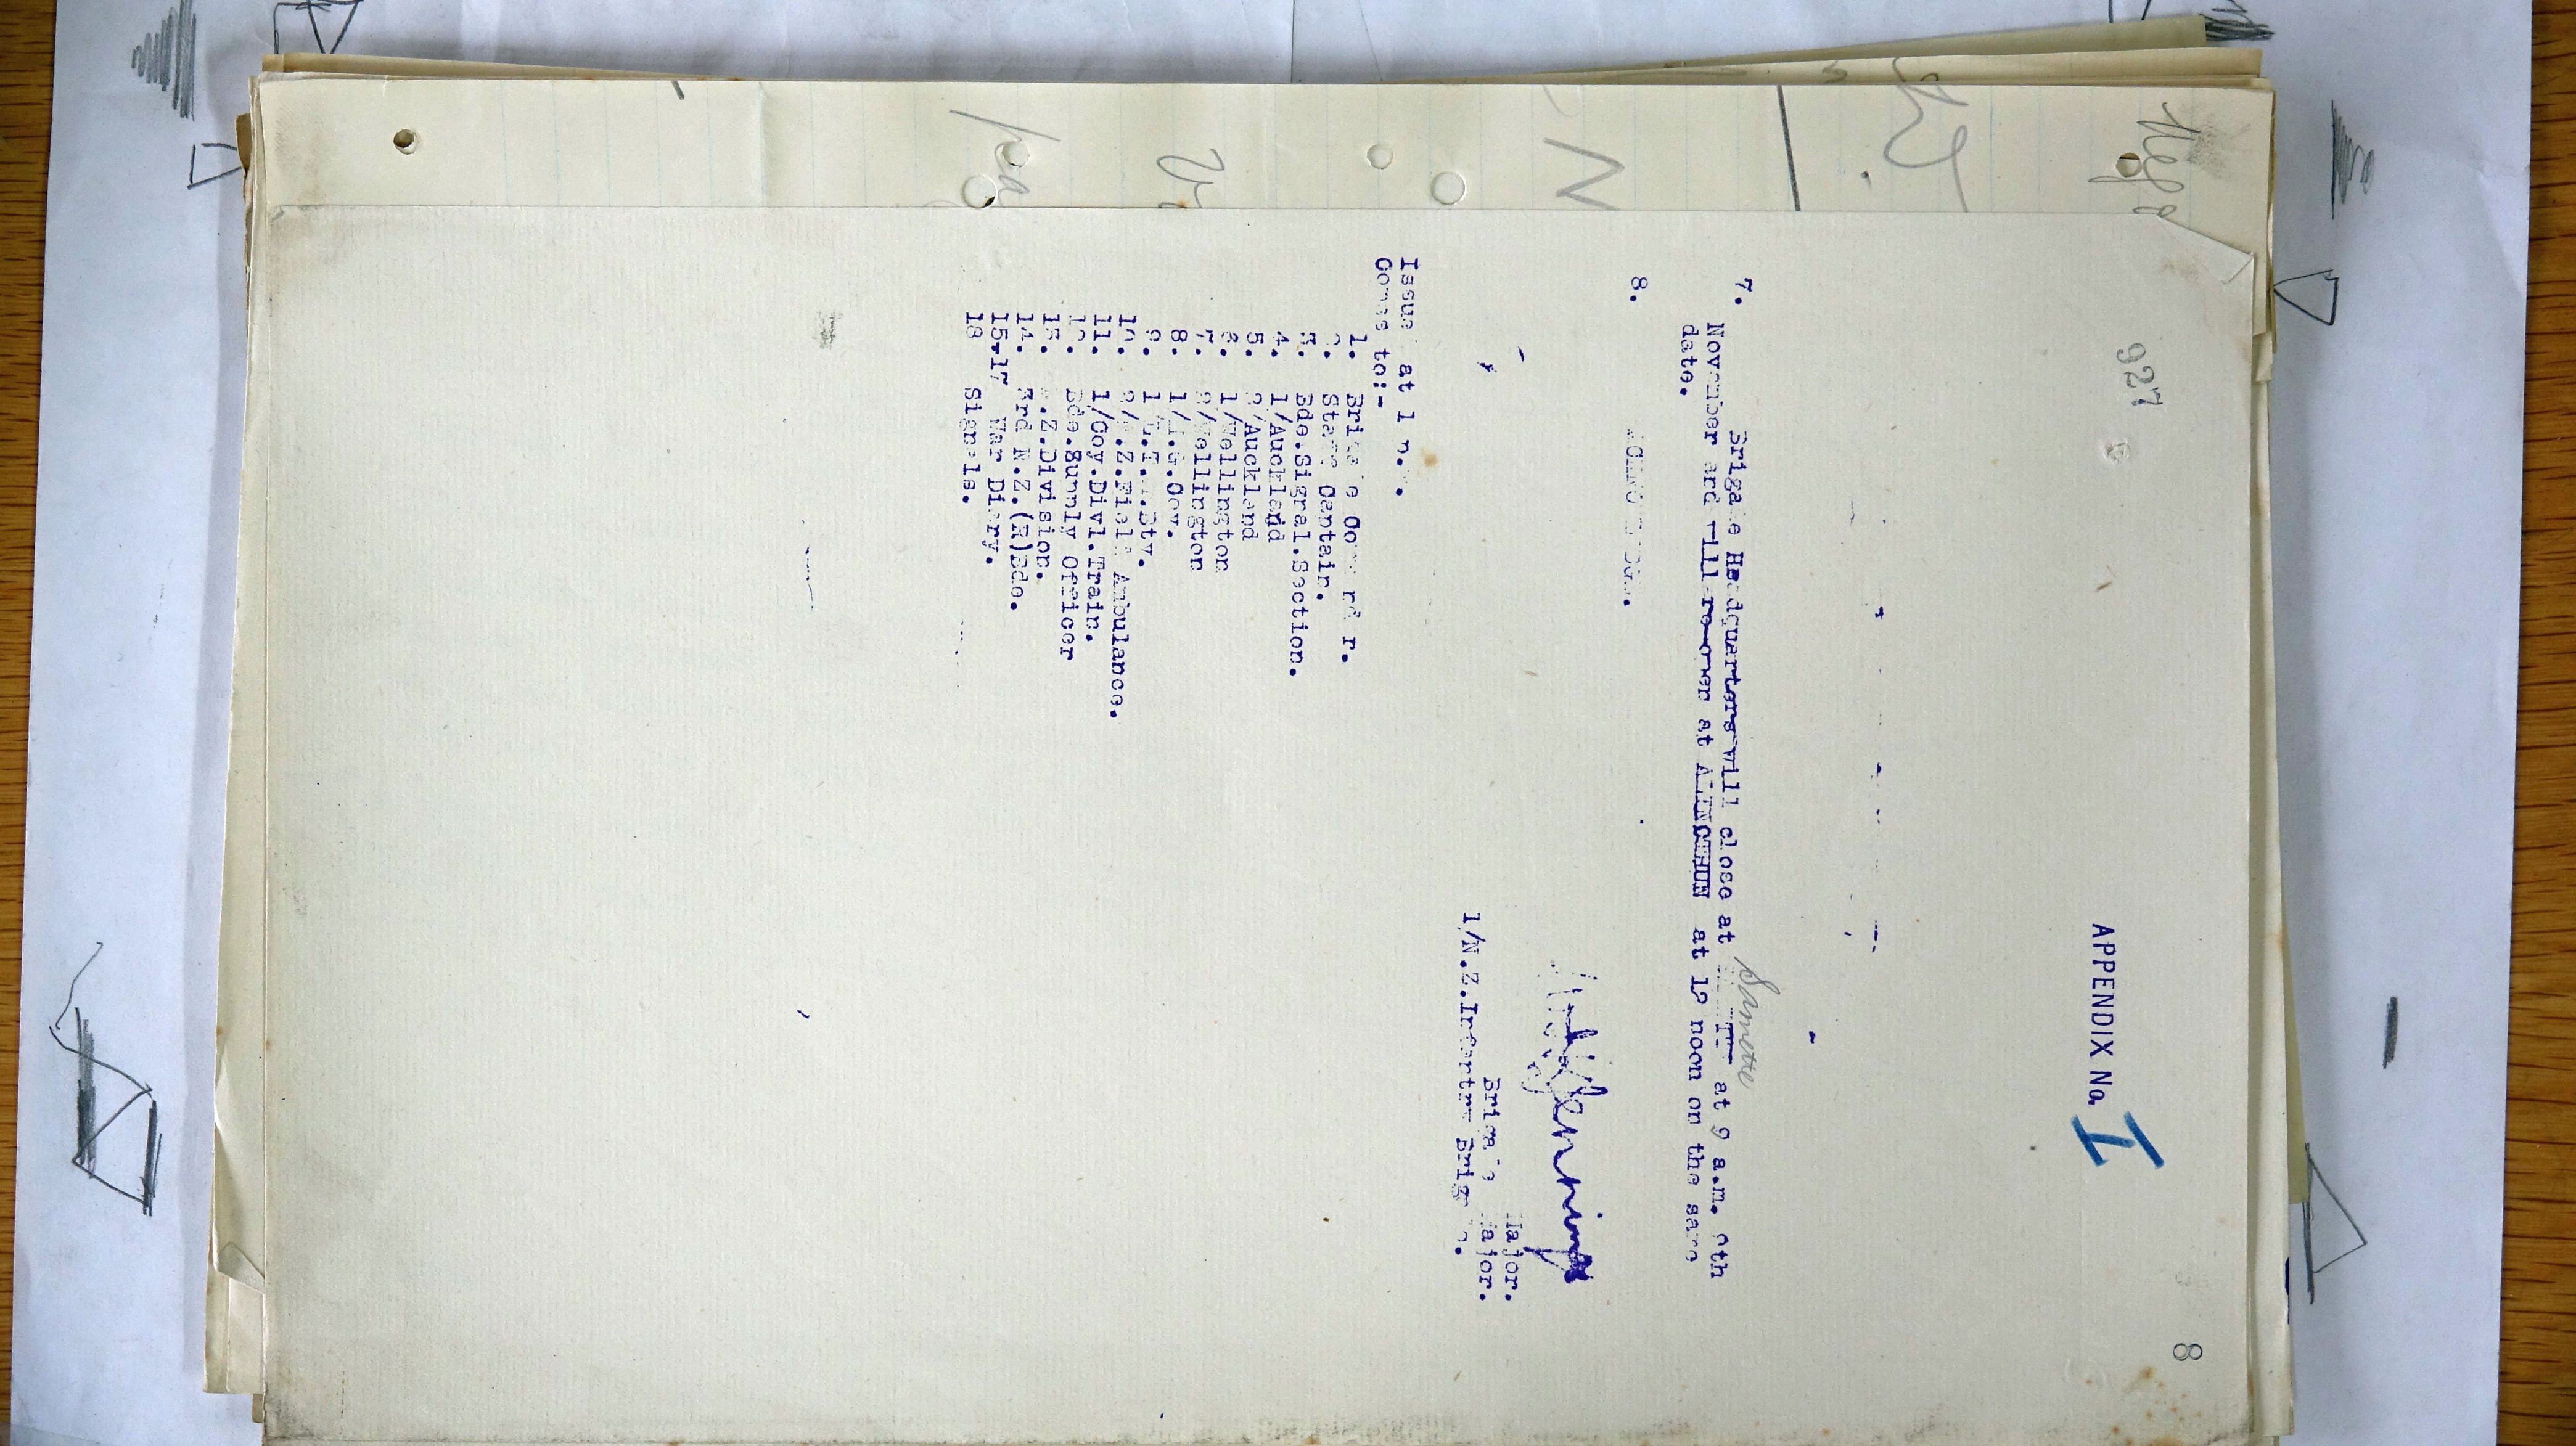 927
8
APPENDIX No. I
7. Brigade Headquarters will close at Samette at 9 a.m. 9th
November and will re-open at ALINCTHUN at 12 noon on the same
date.
8. ACKNOWLEDGE.
Major.
Brigade Major.
1/N.Z.Infantry Brigade.
Issued at 1 p.m.
Copies to:-
1. Brigade Commander.
2. Staff Captain.
3. Bde.Signal.Section.
4. 1/Auckland
5. 2/Auckland
6. 1/Wellington
7. 2/Wellington
8. 1/M.G.Coy.
9. 1 L.T.M.Bty.
10. 2/N.Z.Field Ambulance.
11. 1/Coy.Divl.Train.
12. Bde.Supply Officer
13. N.Z.Division.
14. 3rd N.Z.(R)Bde.
15-17 War Diary.
18 Signals.